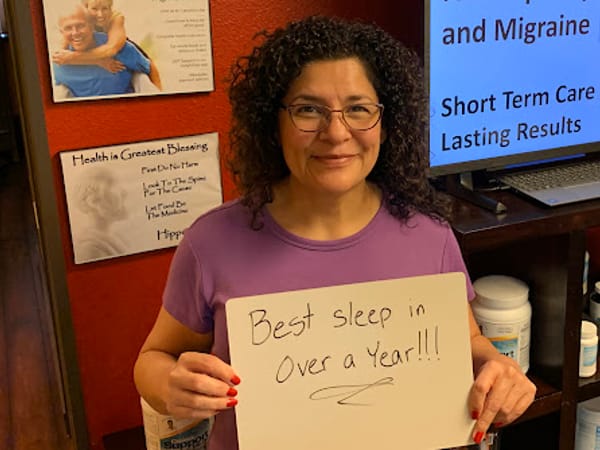 and Migraine
Short Term Care
Lasting Results
Health is Greatest Blessing
First Do No Harm
Look To The Spine
For The Cause
Let Food Be
The Medicine
Best sleep in
over a Year!!!
Support